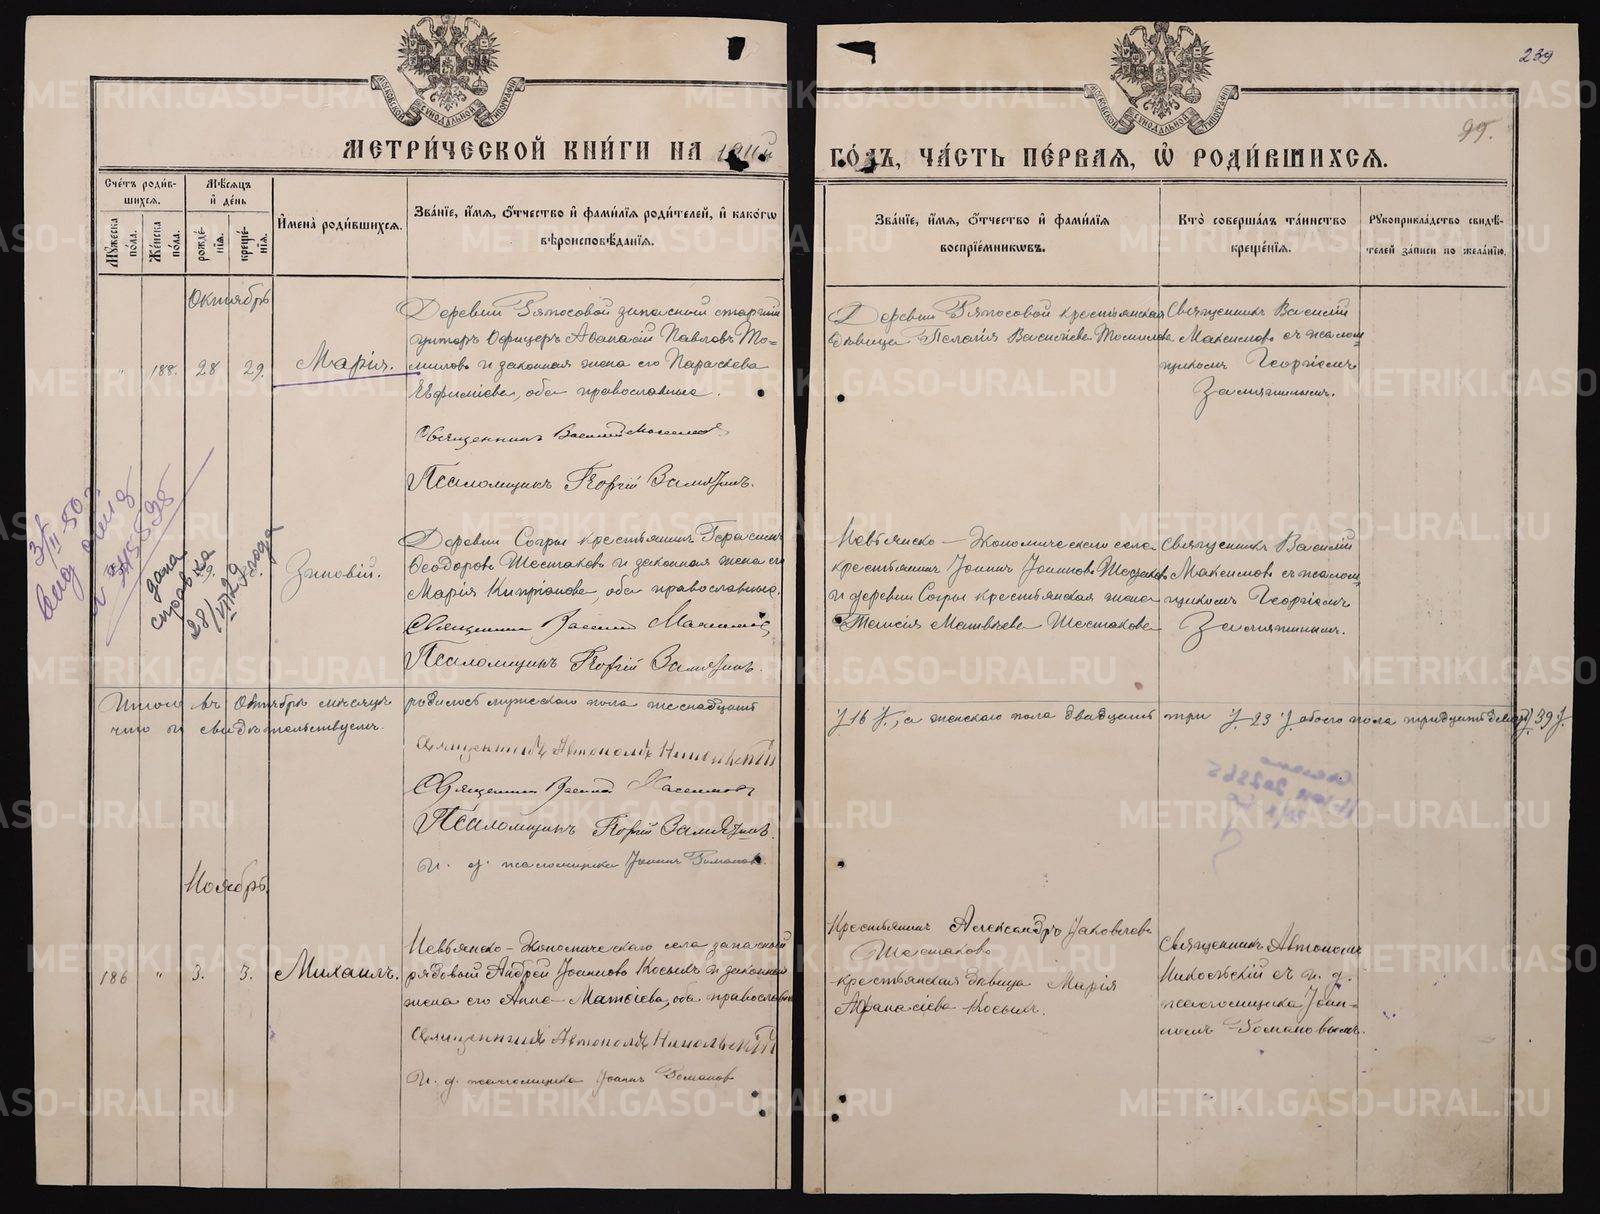 239
95.
МЕТРИ́ЧЕСКОЙ КНИ́ГИ НА 1911й
ГО́ДЪ, ЧА́СТЬ ПЕ́РВАЯ, Ѡ҆ РОДИ́ВШИХСЯ.
Сче́тъ роди́в-
шихся.
Мѣ́сяцъ
и҆ де́нь
Му́жеска по́ла.
Же́нска по́ла.
рожде́-
нїя.
креще́-
нїя.
И҆мена̀ роди́вшихся.
Зва́нїе, и҆́мя, ѻ҆́тчество и҆ фами́лїя роди́телей, и҆ како́гѡ
вѣроисповѣ́данїя.
Зва́нїе, и҆́мя, ѻ҆́тчество и҆ фами́лїя
воспрїе́мниковъ.
Кто̀ соверша́лъ та́инство
креще́нїя.
Рꙋкоприкла́дство свидѣ́-
телей за́писи по жела́нїю.
Октябрь
188.
28
29.
Марія.
Деревни запасный старшій
унтеръ офицеръ Аѳанасій Павловъ То-
миловъ и законная жена его Параскева
Евфиміева, оба православные.
Священникъ Василій Максимовъ
Псаломщикъ Георгій Замятинъ.
Деревни крестьянская
дѣвица Пелагія Васильева Томилова
Священникъ Василій
Максимовъ съ псалом-
щикомъ Георгіемъ
Замятинымъ.
дана
справка
28/VII 29 года
Зиновій.
Деревни Согры крестьянинъ Герасимъ
Ѳеодоровъ Шестаковъ и законная жена его
Марія Кипріанова, оба православные.
Священникъ Василій Максимовъ
Псаломщикъ Георгій Замятинъ.
Невьянско-Экономическаго села
крестьянинъ Іоаннъ Іоанновъ Шестаковъ
и деревни Согры крестьянская жена
Таисія Матвѣева Шестакова
Священникъ Василій
Максимовъ съ псалом-
щикомъ Георгіемъ
Замятинымъ.
Итого въ Октябрѣ мѣсяцѣ родилось мужескаго пола шестнадцать
16, а женскаго пола двадцать три 23 обоего пола тридцать девять 39
что и свидѣтельствуемъ.
Священникъ Автономъ Никольскій
Священникъ Василій Максимовъ
Псаломщикъ Георгій Замятинъ.
И. д. псаломщика Іоаннъ Романовъ.
Ноябрь.
186
"
3.
3.
Михаилъ.
Невьянско-Экономическаго села запасный
рядовой Андрей Іоанновъ Косыхъ и законная
жена его Анна Матѳіева, оба православные
Священникъ Автономъ Никольскій
И. д. псаломщика Іоаннъ Романовъ
Крестьянинъ Александръ Іаковлевъ
Шестаковъ
крестьянская дѣвица Марія
Аѳанасіева Косыхъ.
Священникъ Автономъ
Никольскій съ и. д.
псаломщика Іоан-
номъ Романовымъ.
METRIKI.GASO-URAL.RU